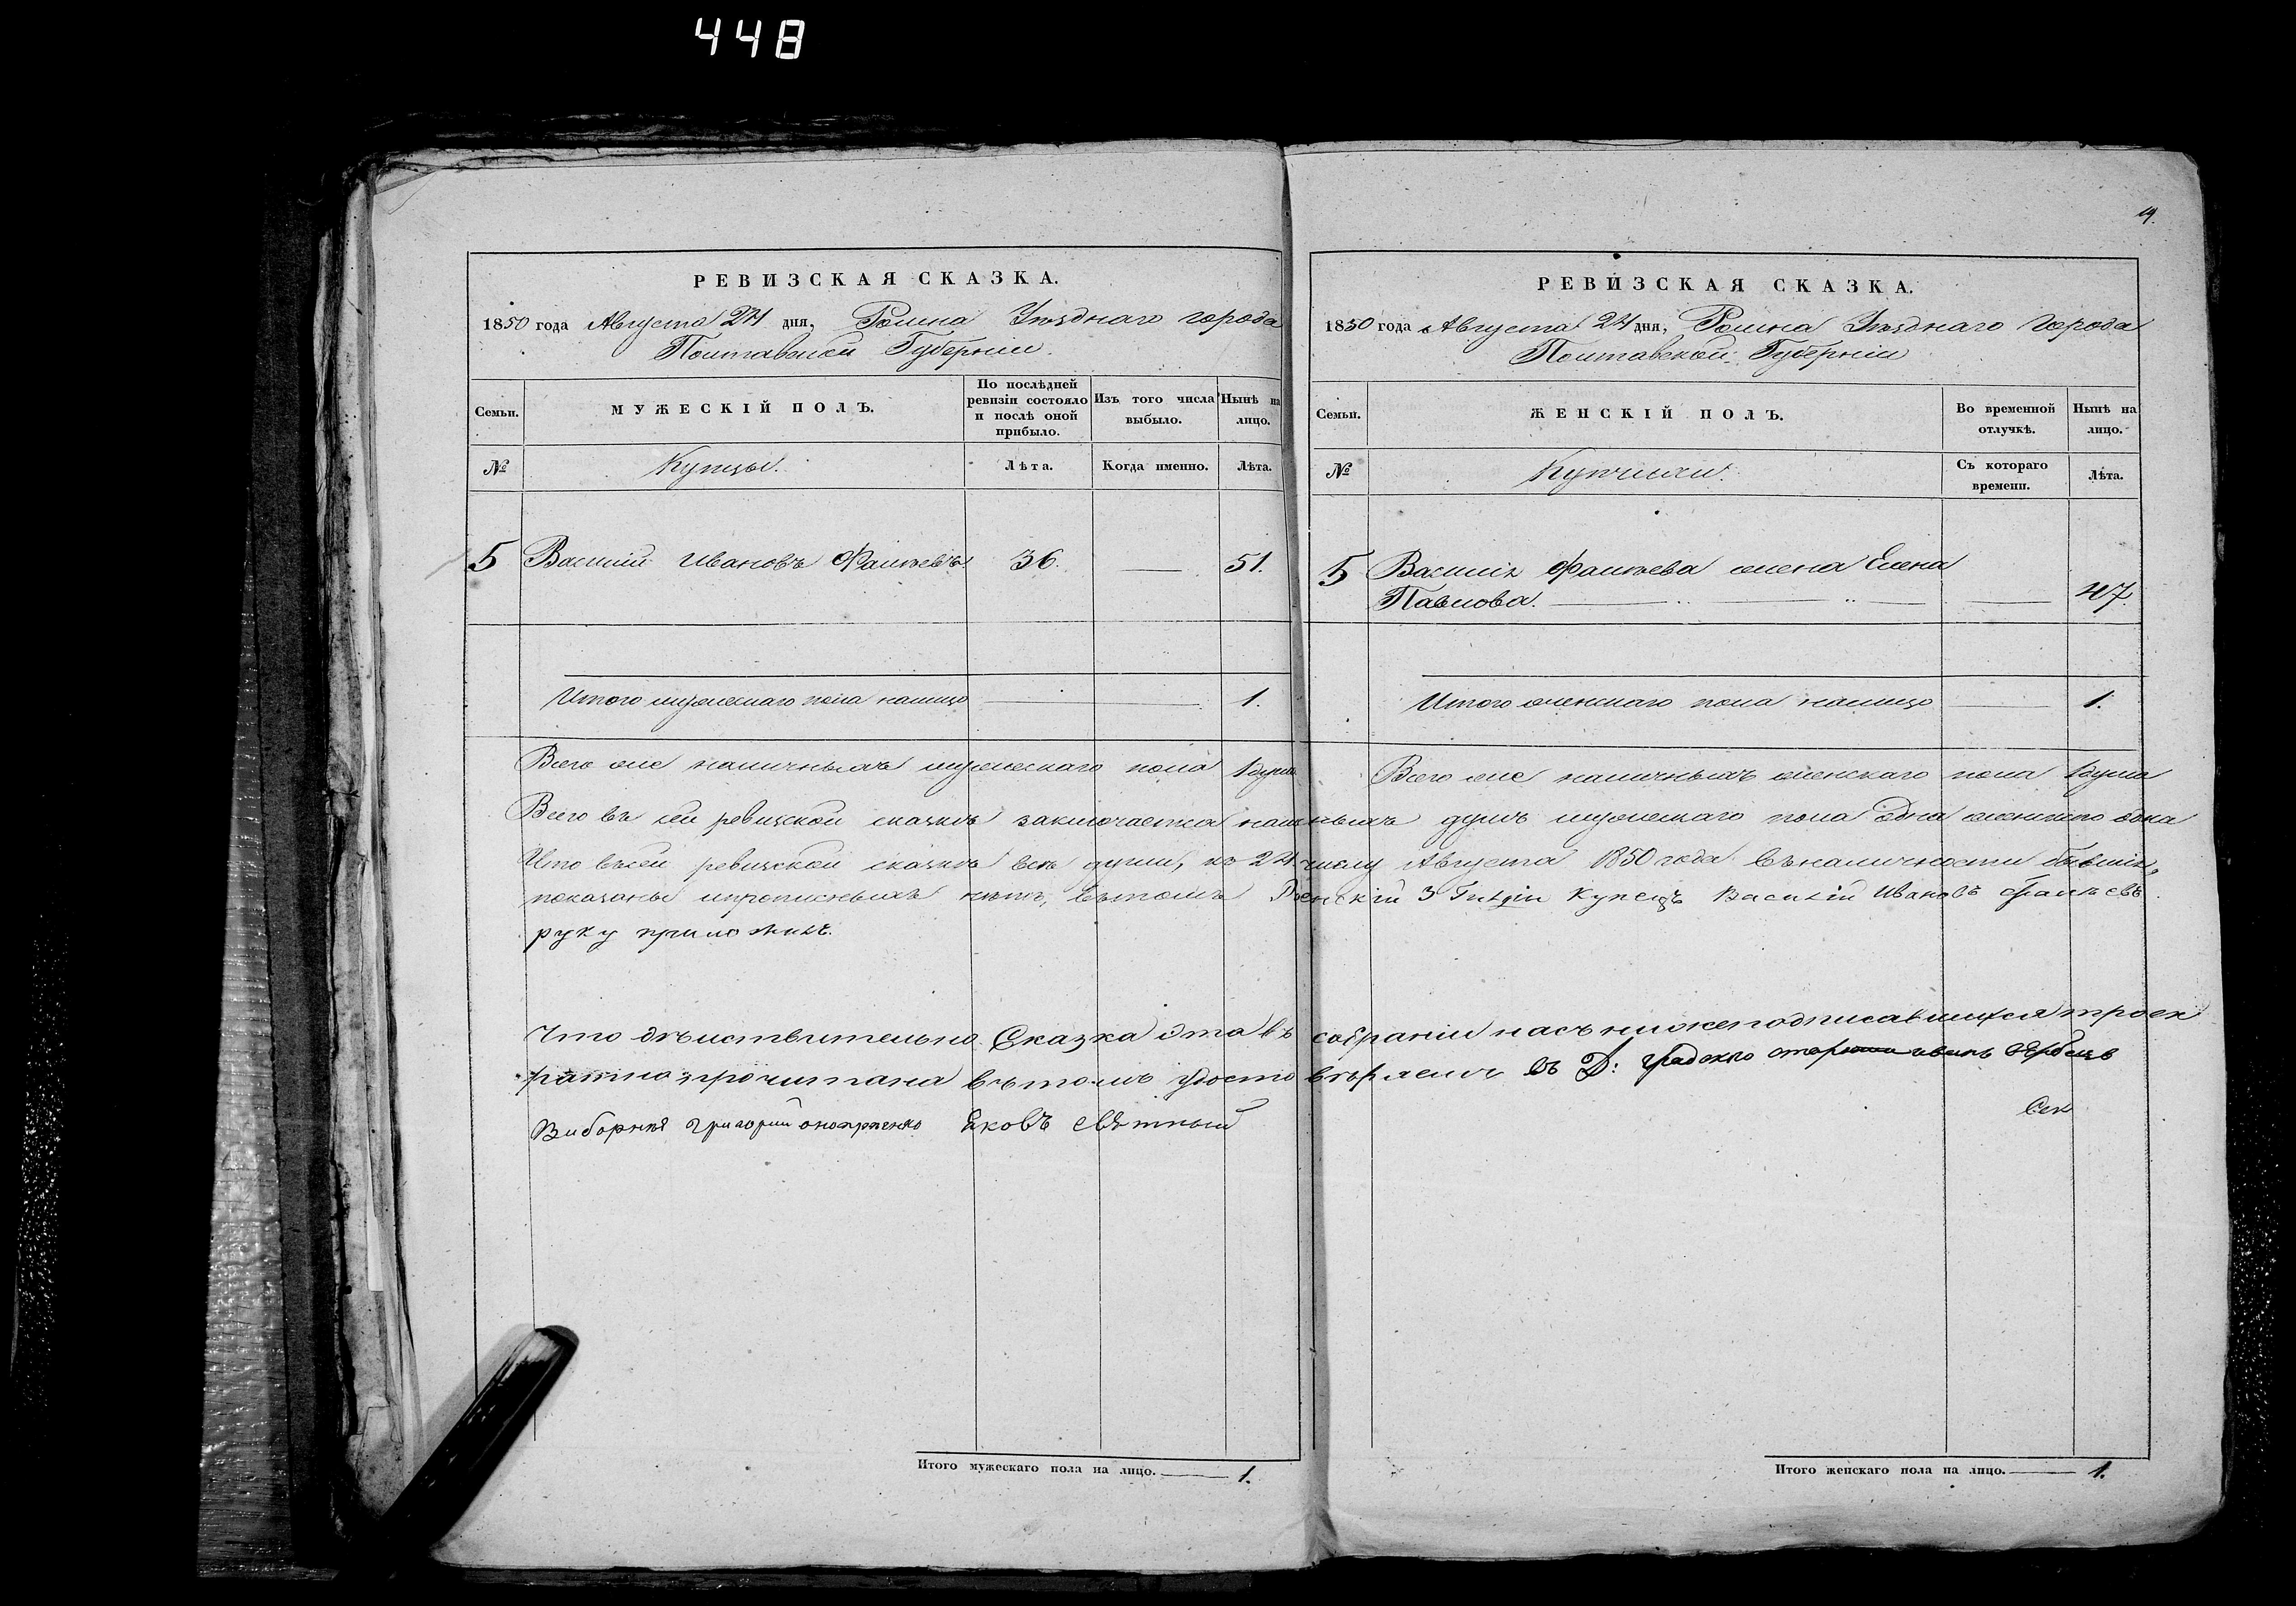 448
19.
РЕВИЗСКАЯ СКАЗКА.
1850 года Августа 24 дня, Ромна Уѣзднаго города
Полтавской Губерніи.
Семьи. МУЖЕСКІЙ ПОЛЪ. По послѣдней ревизіи состояло и послѣ оной прибыло. Изъ того числа выбыло. Нынѣ на лицо.
№ Купцы. Лѣта. Когда именно. Лѣта.
5 Василій Ивановъ Фалѣевъ 36. — 51.
Итого мужескаго пола налицо — 1.
Всего же наличныхъ мужескаго пола 1 душа
РЕВИЗСКАЯ СКАЗКА.
1850 года Августа 24 дня, Ромна Уѣзднаго Города
Полтавской Губерніи
Семьи. ЖЕНСКІЙ ПОЛЪ. Во временной отлучкѣ. Нынѣ на лицо.
№ Купчихи. Съ котораго времени. Лѣта.
5 Василія Фалѣева жена Елена
Павлова. — 47.
Итого женскаго пола налицо — 1.
Всего же наличныхъ женскаго пола 1 душа
Всего въ сей ревизской сказкѣ заключается наличныхъ душъ мужескаго пола одна женскаго одна
Что въ сей ревизской сказкѣ всѣ души, къ 24 числу Августа 1850 года въ наличности бывшія,
показаны и прописныхъ нѣтъ, въ томъ Роменскій 3 Гильдіи Купецъ Василій Ивановъ Фалѣевъ
руку приложилъ.
Что дѣйствительно Сказка эта въ собраніи насъ нижеподписавшихся троек
ратно прочитана въ томъ удостовѣряемъ въ Д: Градскаго
Виборній Григорий Яковъ
Итого мужескаго пола на лицо. — 1.
Итого женскаго пола на лицо. — 1.